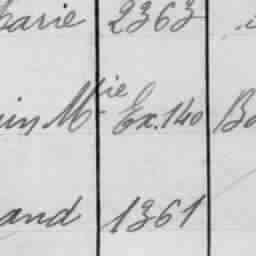 Marie 2363
in Mie Ex. 140 Ba
and 1361